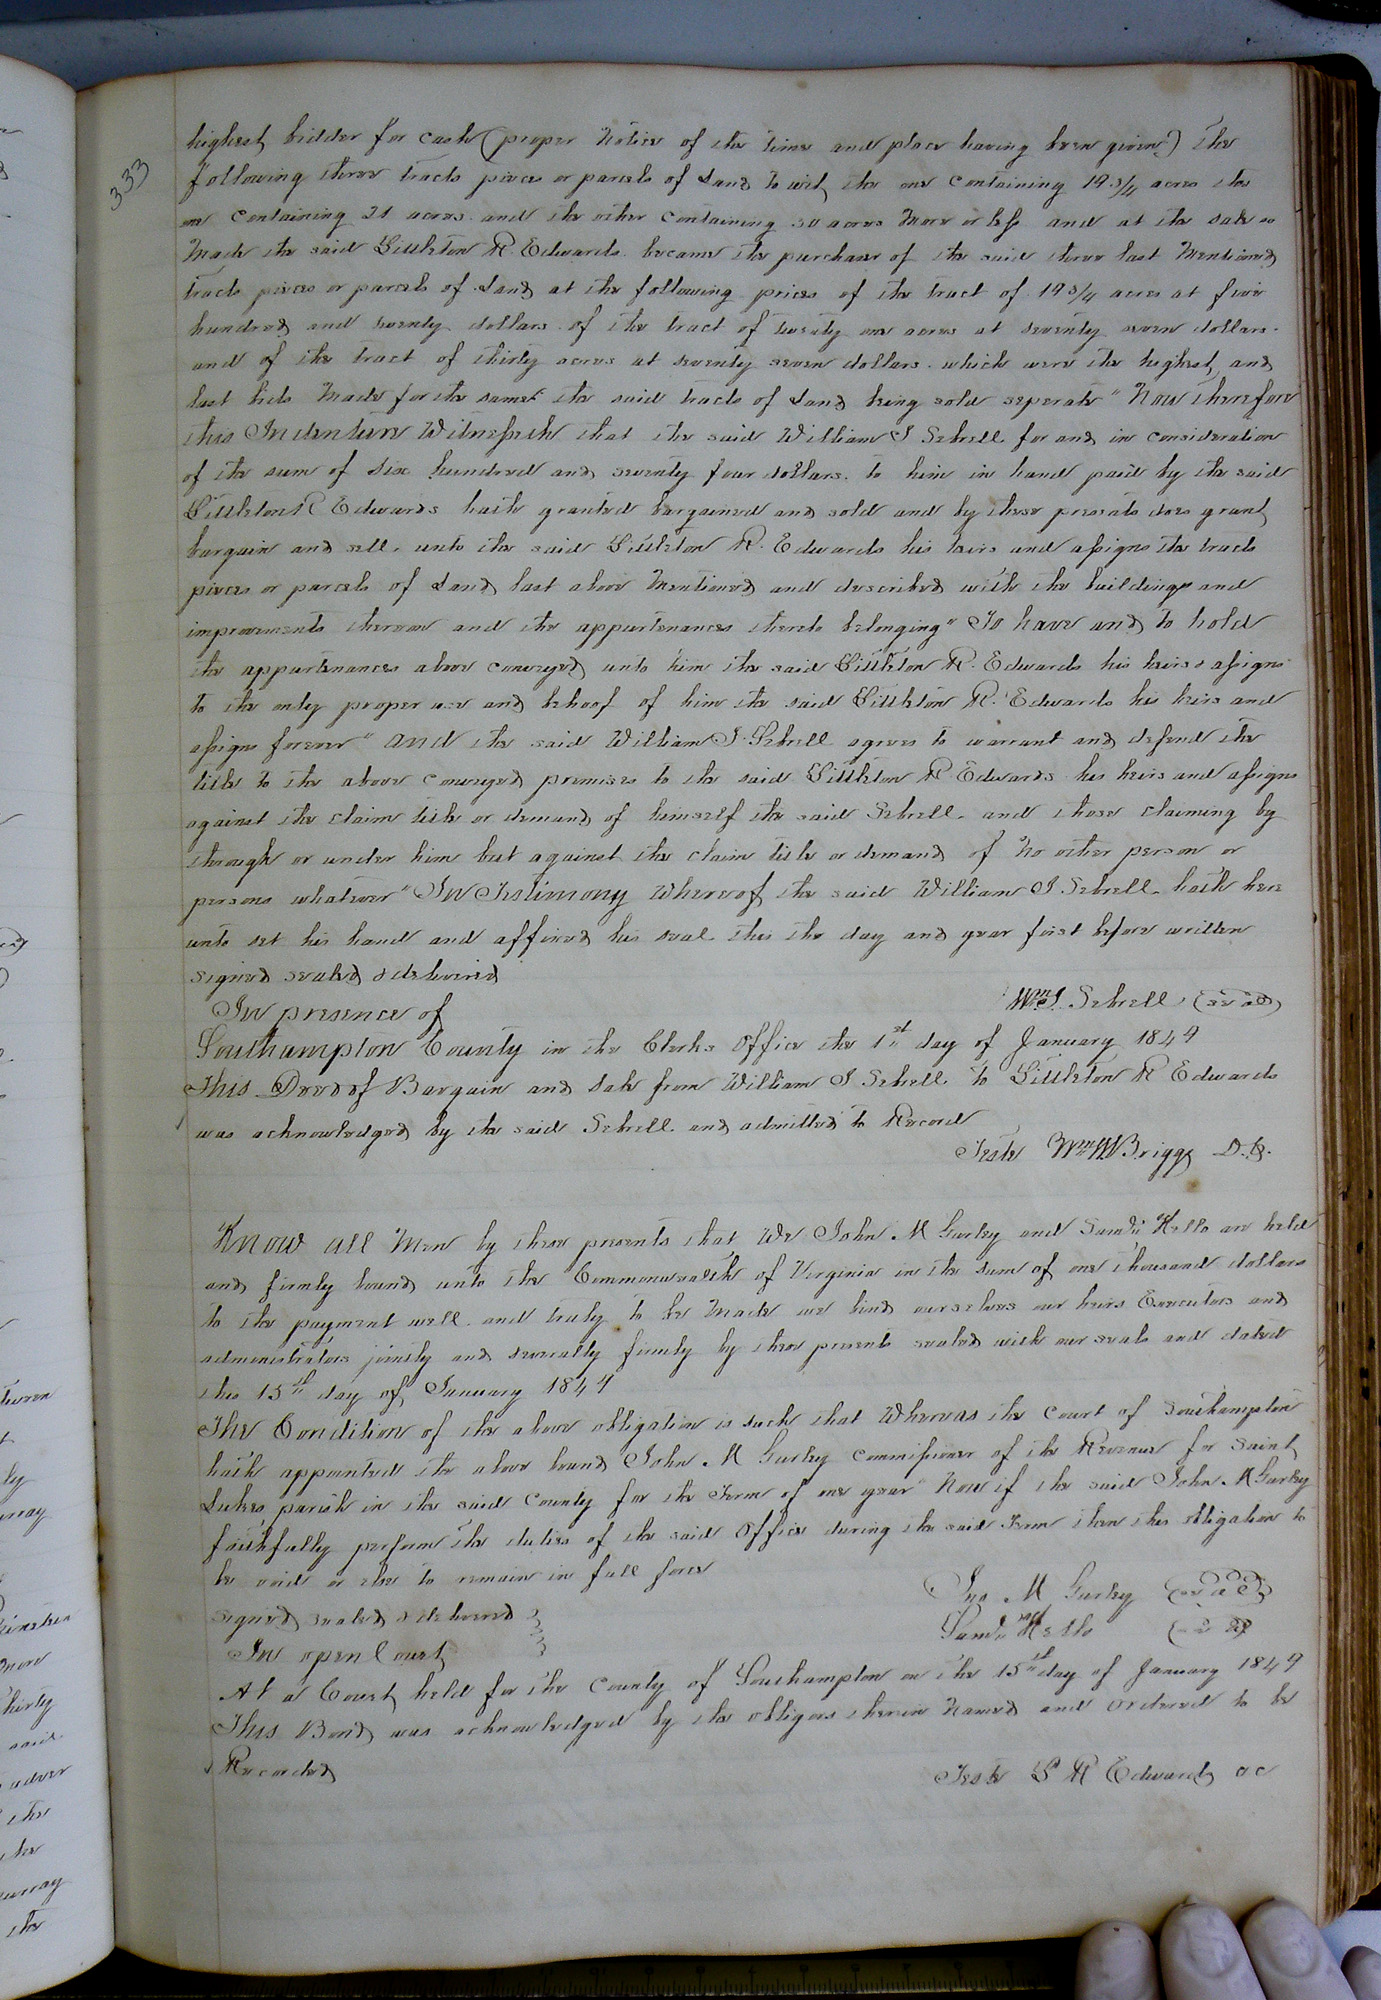 333
highest bidder for cash (proper notice of the time and place having been given) the
following three tracts pieces or parcels of Land to wit, the one containing 19 3/4 acres the
one containing 21 acres and the other containing 30 acres more or less and at the sale so
made the said Littleton R. Edwards became the purchaser of the said three last mentioned
tracts pieces or parcels of Land at the following prices of the tract of 19 3/4 acres at five
hundred and twenty dollars of the tract of twenty one acres at seventy seven dollars.
and of the tract of thirty acres at seventy seven dollars which were the highest and
last bids made for the same the said tracts of Land being sold seperate" Now Therefore
this Indenture Witnesseth that the said William J Sebrell for and in consideration
of the sum of six hundred and seventy four dollars to him in hand paid by the said
Littleton R Edwards hath granted bargained and sold and by these presents does grant
bargain and sell unto the said Littleton R. Edwards his heirs and assigns the tracts
pieces or parcels of Land last above mentioned and described with the buildings and
improvements thereon and the appurtenances thereto belonging" To have and to hold
the appurtenances above conveyed unto him the said Littleton R. Edwards his heirs & assigns
to the only proper use and behoof of him the said Littleton R. Edwards his heirs and
assigns forever" And the said William J. Sebrell agrees to warrant and defend the
title to the above conveyed premises to the said Littleton R Edwards his heirs and assigns
against the claim title or demand of himself the said Sebrell and those claiming by
through or under him but against the claim title or demand of no other person or
persons whatever" In Testimony whereof the said William J Sebrell hath here
unto set his hand and affixed his seal this the day and year first before written
signed sealed & delivered
In presence of
Wm J. Sebrell (seal)
Southampton County in the Clerks Office the 1st day of January 1849
This Deed of Bargain and Sale from William J Sebrell to Littleton R Edwards
was acknowledged by the said Sebrell and admitted to Record
Teste Wm W Briggs D.C.
Know all Men by these presents that We John M Gurley and Saml Kello are held
and firmly bound unto the Commonwealth of Virginia in the sum of one thousand dollars
to the payment well and truly to be made we bind ourselves our heirs Executors and
administrators jointly and severally firmly by these presents sealed with our seals and dated
this 15th day of January 1849
The Condition of the above obligation is such that Whereas the Court of Southampton
hath appointed the above bound John M Gurley commissioner of the Revenue for Saint
Lukes parish in the said County for the Term of one year" Now if the said John M Gurley
faithfully perform the duties of the said Office during the said Term then this obligation to
be void or else to remain in full force
signed sealed & delivered
In open Court
Jno M Gurley (seal)
Saml Kello (seal)
At a Court held for the County of Southampton on the 15th day of January 1849
This Bond was acknowledged by the obligors therein named and Ordered to be
Recorded
Teste L R Edwards cc